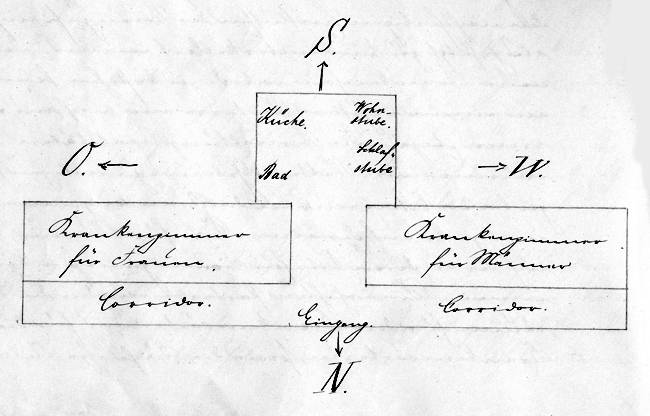 S.
Küche.
Wohn-
stube.
O.
Bad
Schlaf-
stube
W.
Krankenzimmer
für Frauen.
Krankenzimmer
für Männer
Corridor.
Eingang.
Corridor.
N.